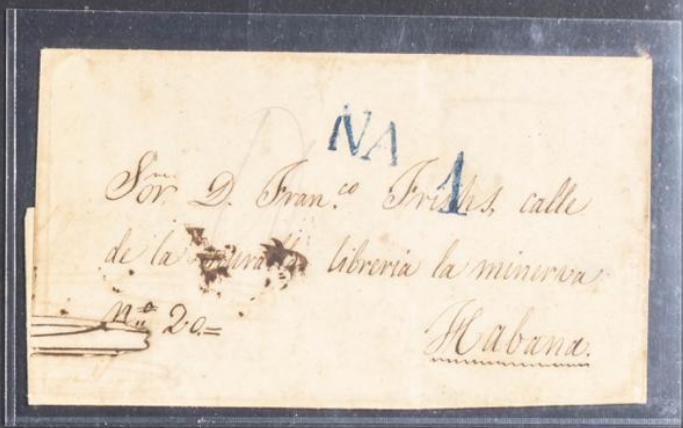 NA
1
Sor. D. Fran.co calle
de la libreria la minerva
N.o 20.=
Habana.